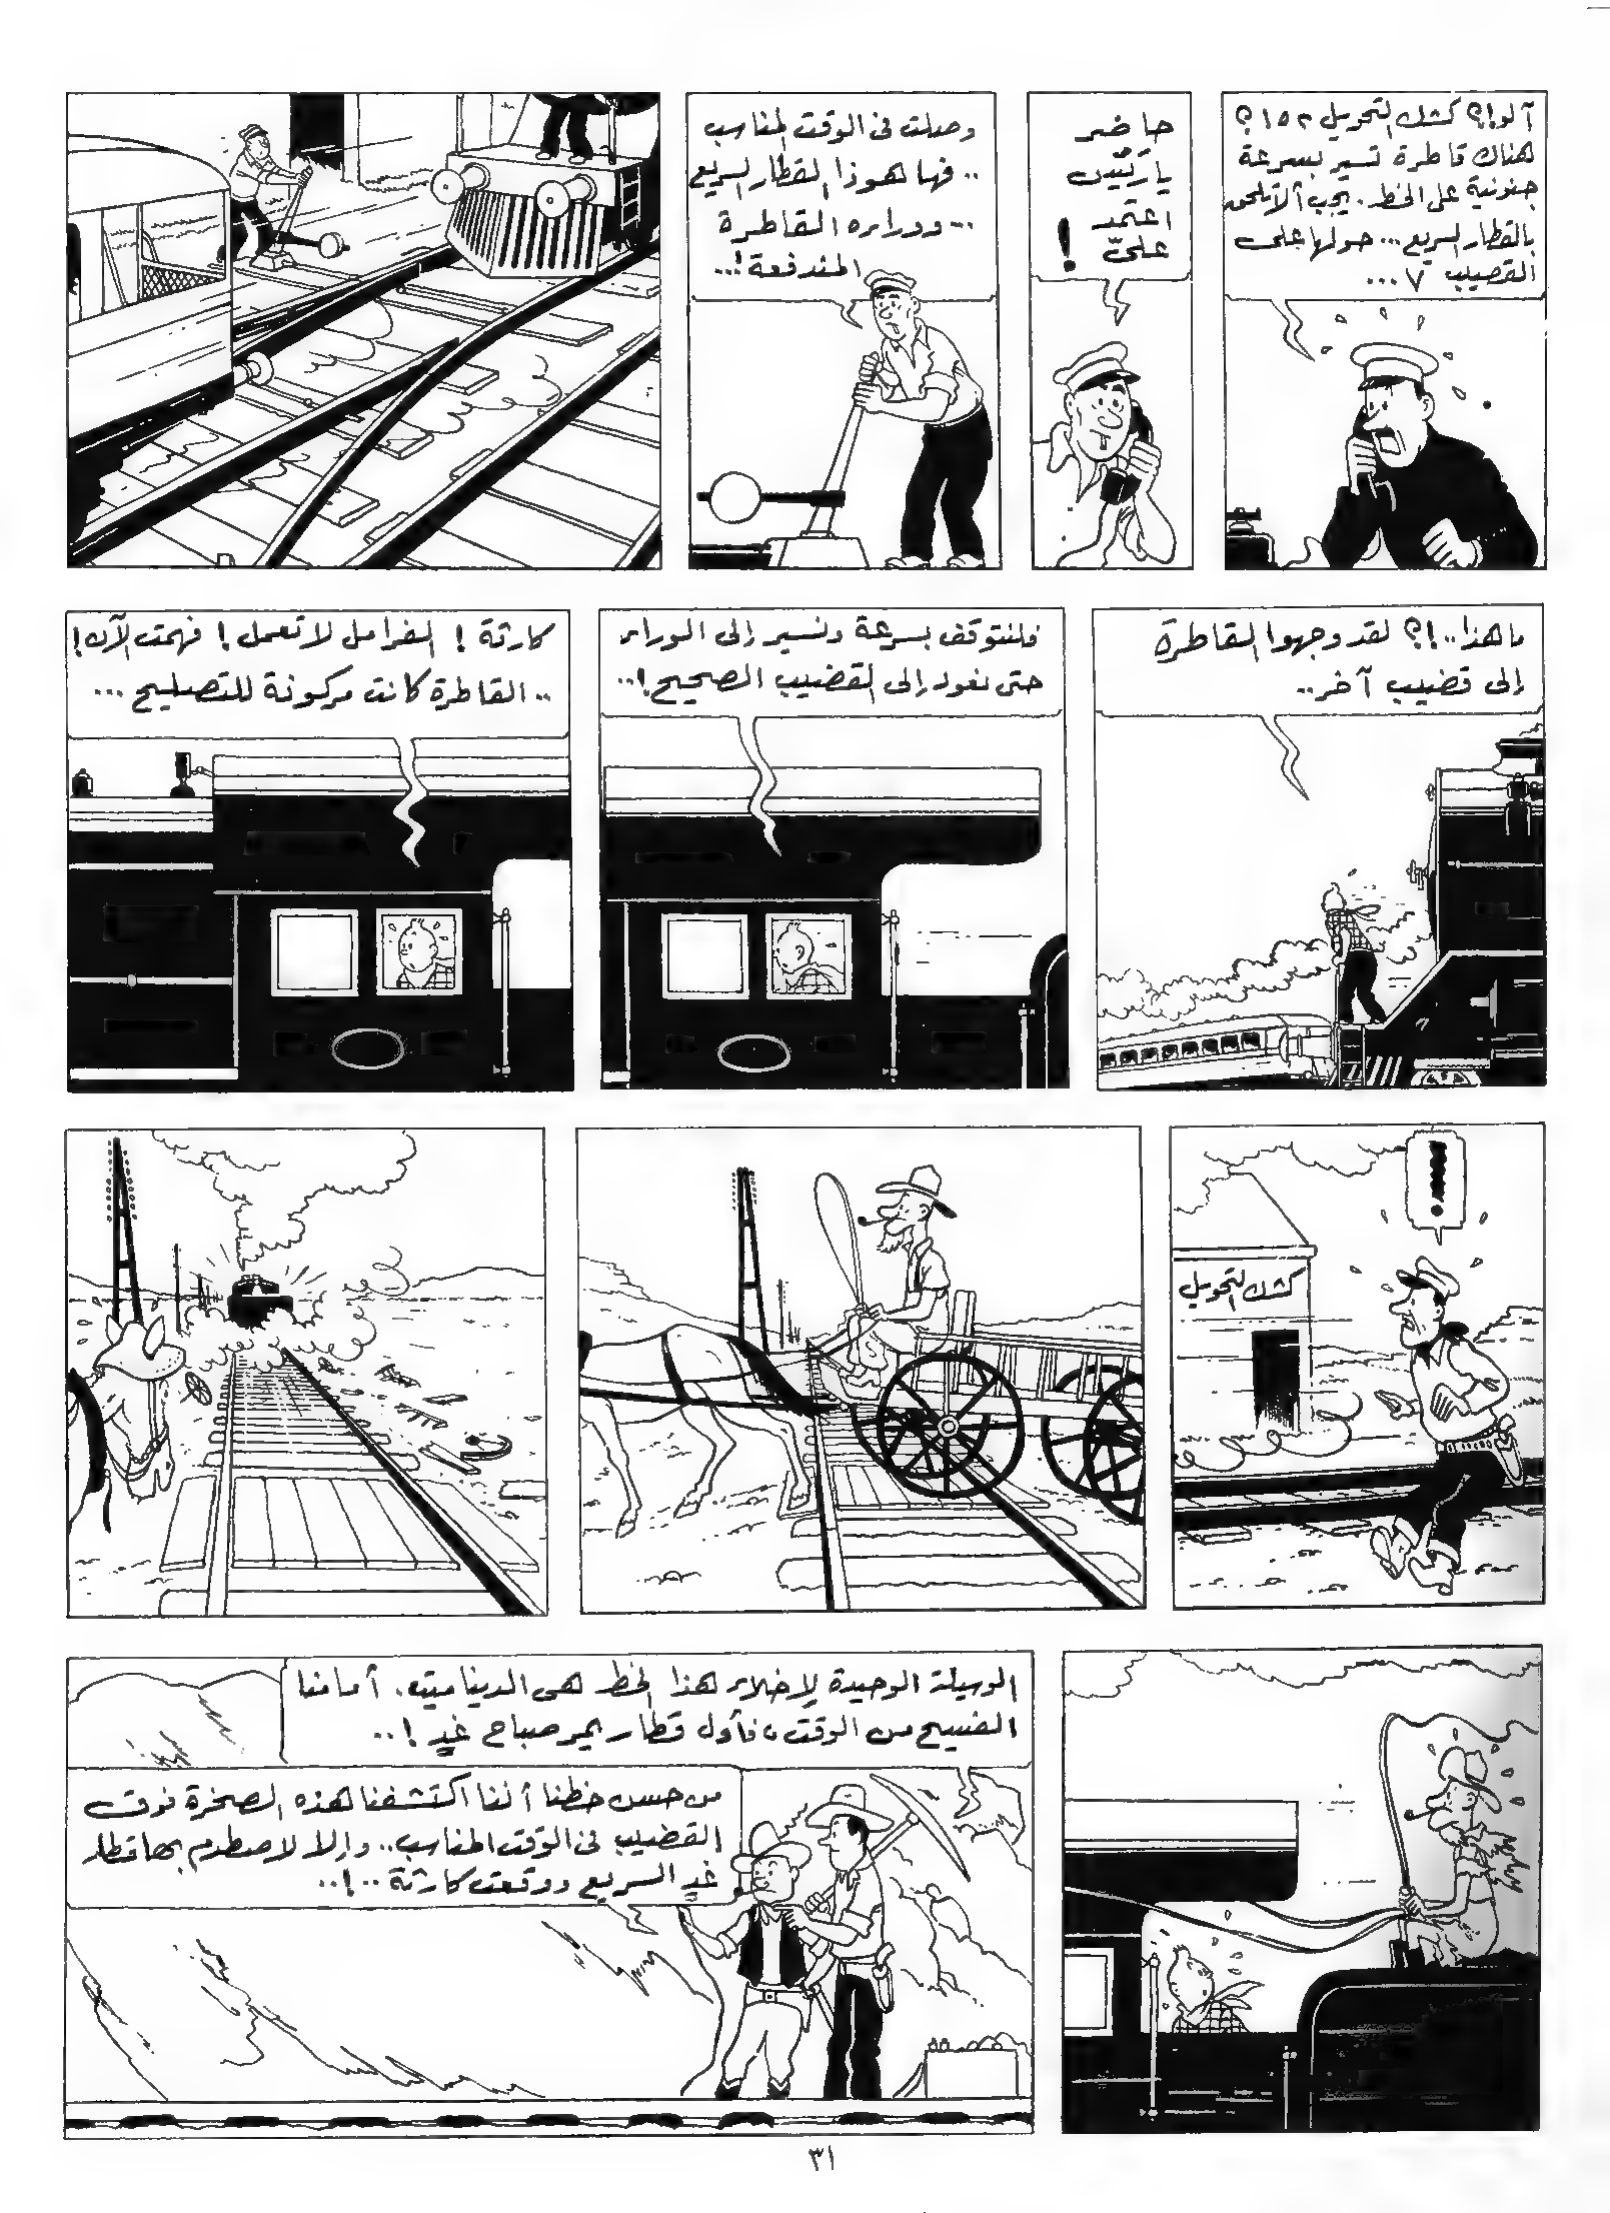 آلو!؟ كشك التحويل ١٥٢؟
هناك قاطرة تسير بسرعة
جنونية على الخط. يجب ألا تلحق
بالقطار السريع... حولها على
القضيب ٧...
حاضر
يا ريّس
اعتمد
علىّ !
وصلت فى الوقت المناسب
.. فها هوذا القطار السريع
... ووراءه القاطرة
المندفعة!...
ما هذا..!؟ لقد وجهوا القاطرة
إلى قضيب آخر..
فلنتوقف بسرعة ونسير إلى الوراء
حتى نعود إلى القضيب الصحيح!..
كارثة ! الفرامل لا تعمل ! فهمت الآن !
.. القاطرة كانت مركونة للتصليح ...
!
كشك التحويل
الوسيلة الوحيدة لإخلاء هذا الخط هى الديناميت. أمامنا
الفسيح من الوقت، فأول قطار يمر صباح غدٍ !..
من حسن حظنا أننا اكتشفنا هذه الصخرة فوق
القضيب فى الوقت المناسب.. وإلا لاصطدم بها قطار
غدٍ السريع ووقعت كارثة ..!..
٣١